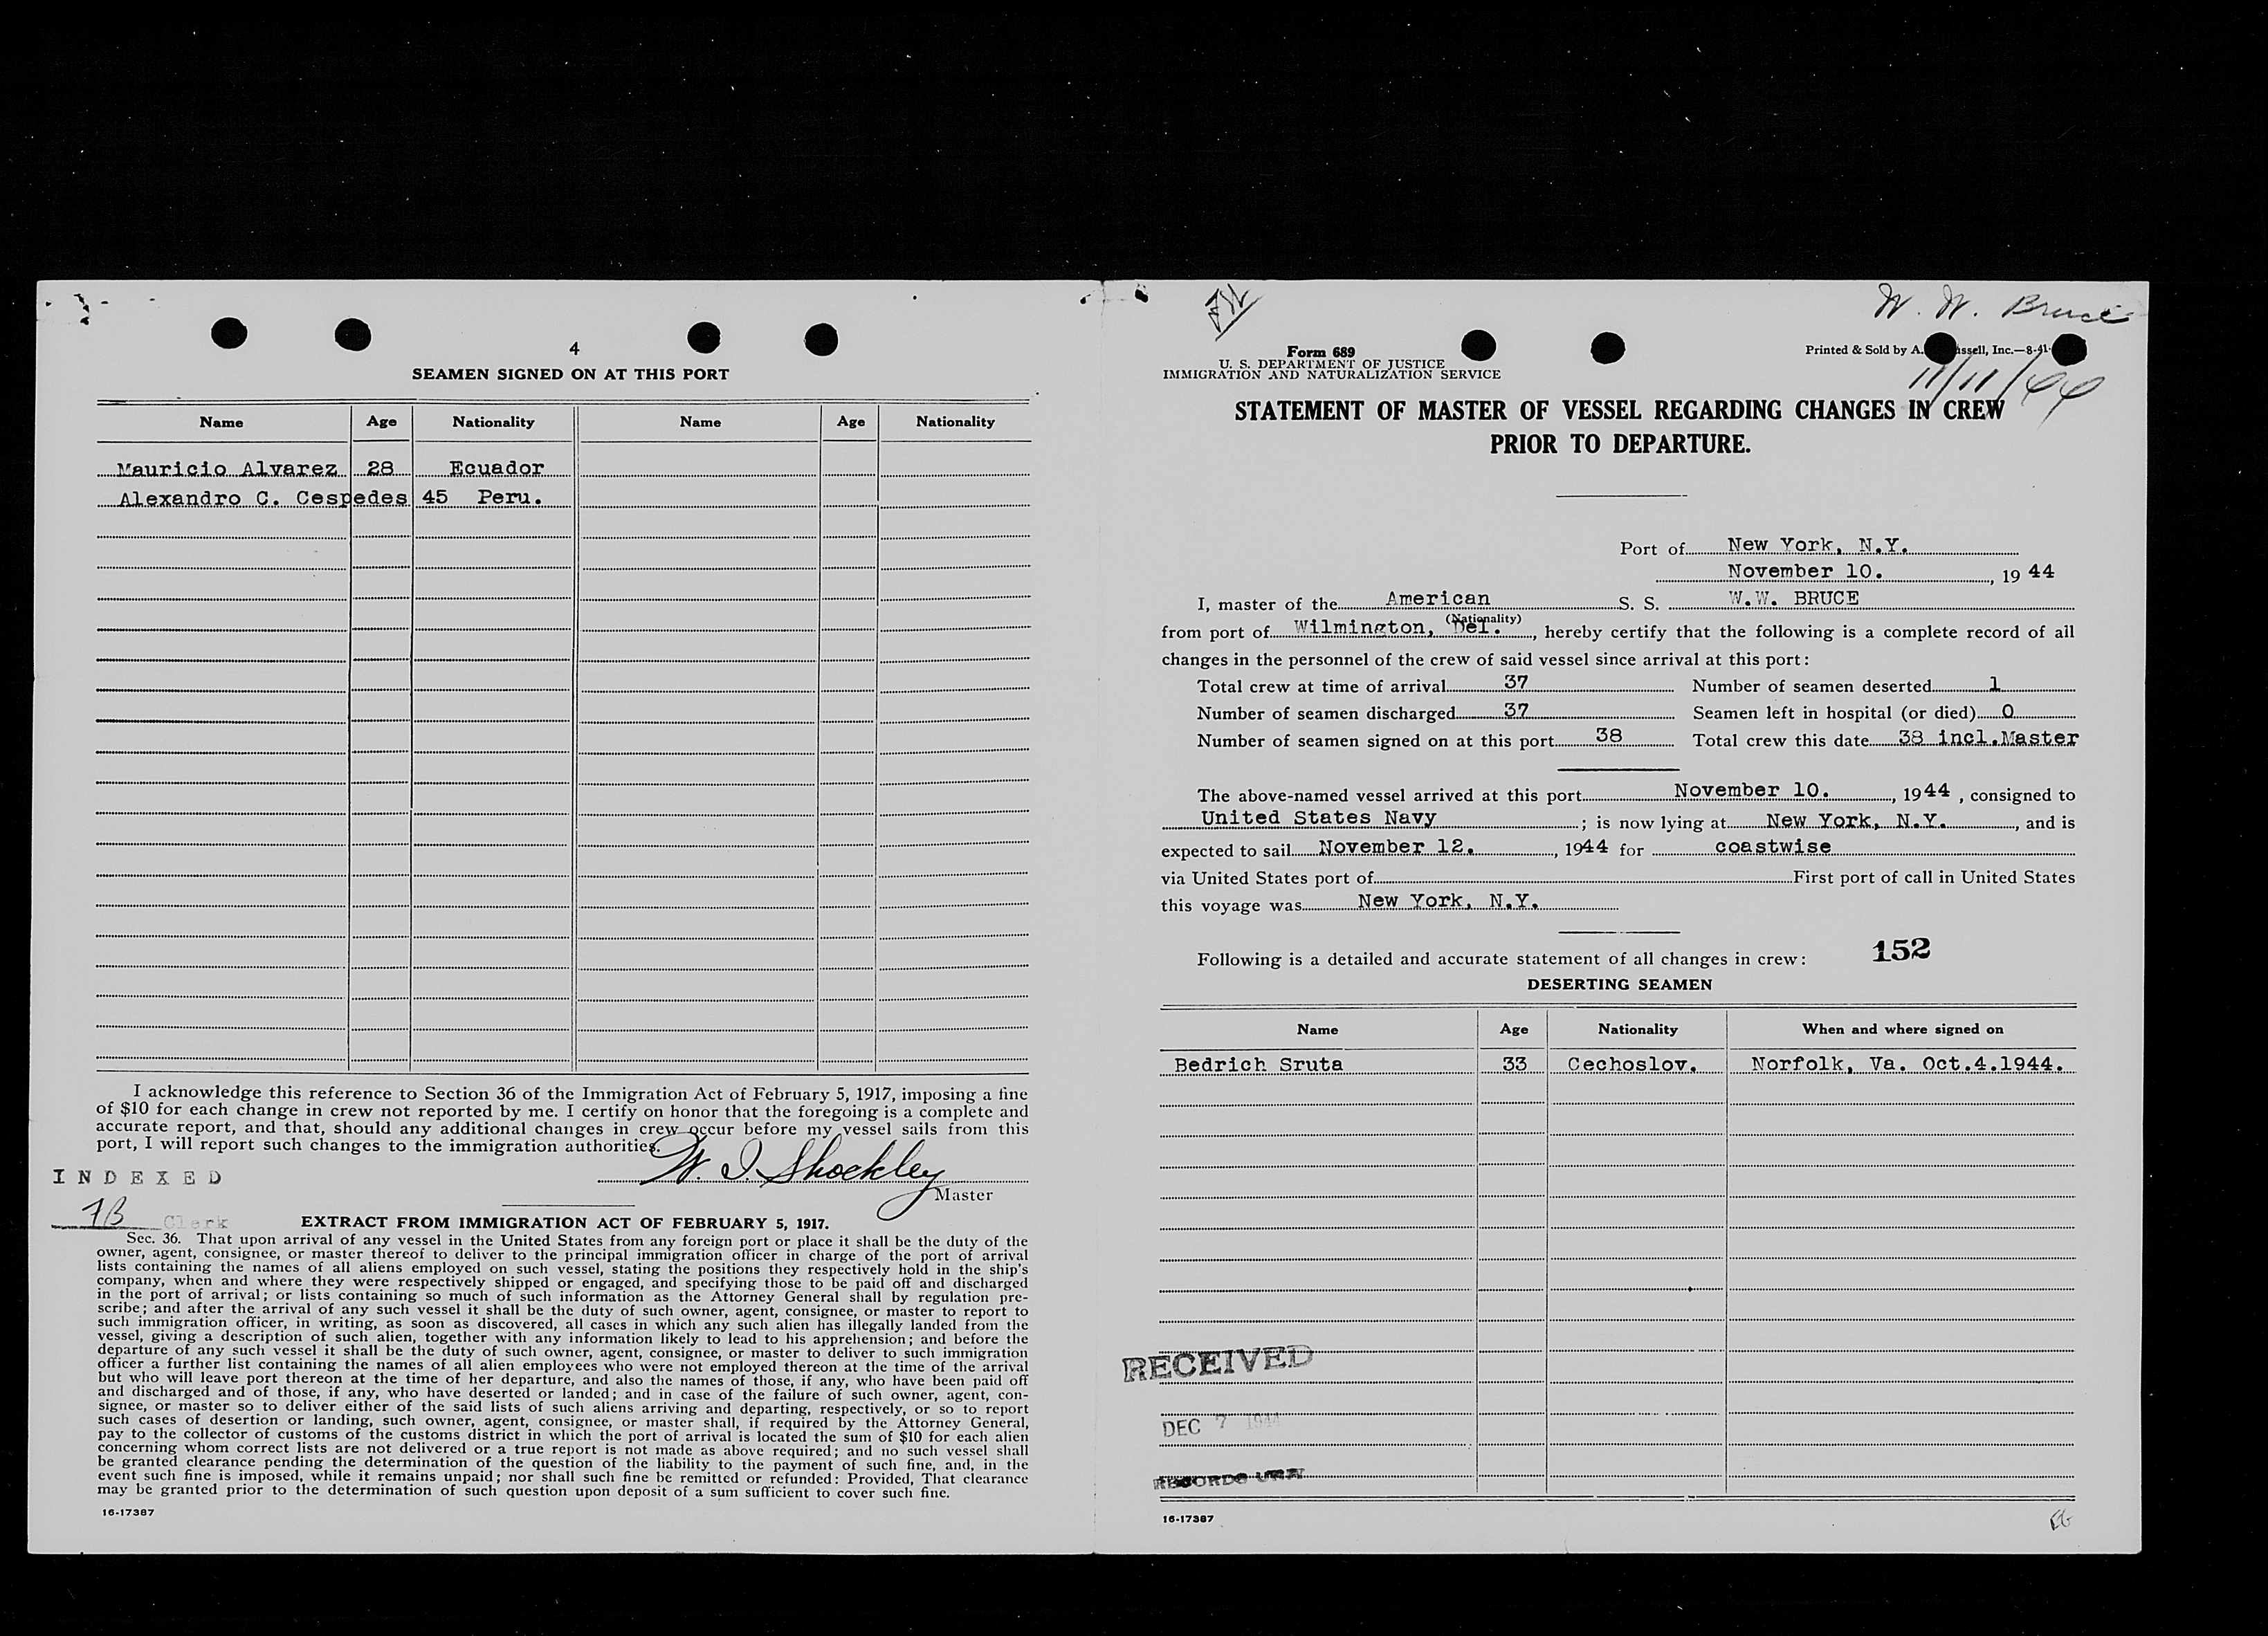 4
SEAMEN SIGNED ON AT THIS PORT
Name Age Nationality Name Age Nationality
Mauricio Alvarez 28 Ecuador
Alexandro C. Cespedes 45 Peru.
I acknowledge this reference to Section 36 of the Immigration Act of February 5, 1917, imposing a fine
of $10 for each change in crew not reported by me. I certify on honor that the foregoing is a complete and
accurate report, and that, should any additional changes in crew occur before my vessel sails from this
port, I will report such changes to the immigration authorities.
W. I. Shockley
Master
INDEXED
Clerk
EXTRACT FROM IMMIGRATION ACT OF FEBRUARY 5, 1917.
Sec. 36. That upon arrival of any vessel in the United States from any foreign port or place it shall be the duty of the
owner, agent, consignee, or master thereof to deliver to the principal immigration officer in charge of the port of arrival
lists containing the names of all aliens employed on such vessel, stating the positions they respectively hold in the ship's
company, when and where they were respectively shipped or engaged, and specifying those to be paid off and discharged
in the port of arrival; or lists containing so much of such information as the Attorney General shall by regulation pre-
scribe; and after the arrival of any such vessel it shall be the duty of such owner, agent, consignee, or master to report to
such immigration officer, in writing, as soon as discovered, all cases in which any such alien has illegally landed from the
vessel, giving a description of such alien, together with any information likely to lead to his apprehension; and before the
departure of any such vessel it shall be the duty of such owner, agent, consignee, or master to deliver to such immigration
officer a further list containing the names of all alien employees who were not employed thereon at the time of the arrival
but who will leave port thereon at the time of her departure, and also the names of those, if any, who have been paid off
and discharged and of those, if any, who have deserted or landed; and in case of the failure of such owner, agent, con-
signee, or master so to deliver either of the said lists of such aliens arriving and departing, respectively, or so to report
such cases of desertion or landing, such owner, agent, consignee, or master shall, if required by the Attorney General,
pay to the collector of customs of the customs district in which the port of arrival is located the sum of $10 for each alien
concerning whom correct lists are not delivered or a true report is not made as above required; and no such vessel shall
be granted clearance pending the determination of the question of the liability to the payment of such fine, and, in the
event such fine is imposed, while it remains unpaid; nor shall such fine be remitted or refunded: Provided, That clearance
may be granted prior to the determination of such question upon deposit of a sum sufficient to cover such fine.
16-17387
W. W. Bruce
Form 689
U. S. DEPARTMENT OF JUSTICE
IMMIGRATION AND NATURALIZATION SERVICE
Printed & Sold by A. Inc.—8-41-
11/11/44
STATEMENT OF MASTER OF VESSEL REGARDING CHANGES IN CREW
PRIOR TO DEPARTURE.
Port of New York, N.Y.
November 10. , 19 44
I, master of the American S. S. W.W. BRUCE
(Nationality)
from port of Wilmington, Del. , hereby certify that the following is a complete record of all
changes in the personnel of the crew of said vessel since arrival at this port:
Total crew at time of arrival 37 Number of seamen deserted 1
Number of seamen discharged 37 Seamen left in hospital (or died) 0
Number of seamen signed on at this port 38 Total crew this date 38 incl.Master
The above-named vessel arrived at this port November 10. , 1944 , consigned to
United States Navy ; is now lying at New York, N.Y. , and is
expected to sail November 12. , 1944 for coastwise
via United States port of First port of call in United States
this voyage was New York, N.Y.
Following is a detailed and accurate statement of all changes in crew: 152
DESERTING SEAMEN
Name Age Nationality When and where signed on
Bedrich Sruta 33 Cechoslov. Norfolk, Va. Oct.4.1944.
RECEIVED
DEC 7 1944
RECORDS
16-17387